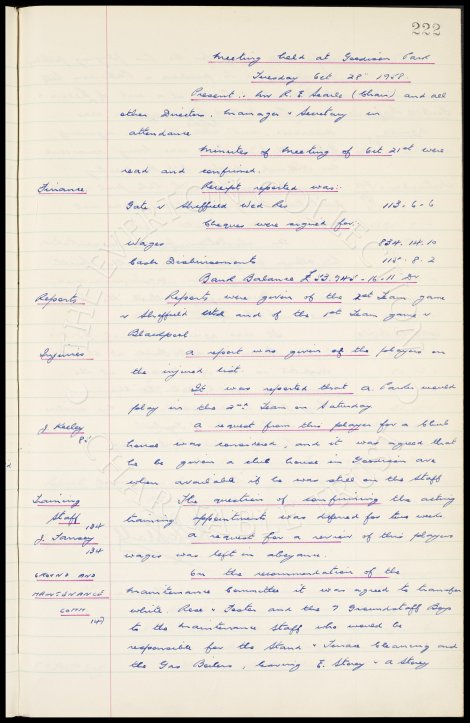 222
Meeting held at Goodison Park
Tuesday Oct 28th 1958.
Present:. Mr R. E. Searle (Chair) and all
other Directors. Manager & Secretary in
attendance
Minutes of Meeting of Oct 21st were
read and confirmed.
Finance Receipt reported was:
Gate v Sheffield Wed Res 113. 6. 6
Cheques were signed for:
Wages 834. 14. 10
Cash Disbursements 118. 8. 2
Bank Balance £53,948 - 16. 11 Dr
Reports Reports were given of the 2nd Team game
v Sheffield Wed and of the 1st Team game v
Blackpool
Injuries A report was given of the players on
the injured list.
It was reported that A. Parker would
play in the 2nd Team on Saturday
J. Keeley A request from this player for a Club
house was considered, and it was agreed that
he be given a club house in Goodison Ave
when available if he was still on the Staff
Training The question of confirming the acting
Staff training appointments was deferred for two weeks
184
J. Tansey A request for a review of this players
184 wages was left in abeyance.
GROUND AND On the recommendation of the
MAINTENANCE Maintenance Committee it was agreed to transfer
COMM White Rose & Foster and the 7 Groundstaff Boys
to the Maintenance Staff who would be
responsible for the Stand & Terrace Cleaning and
the Gas Boilers, leaving E. Storey & A Storey
THE EVERTON COLLECTION
CHARITABLE TRUST